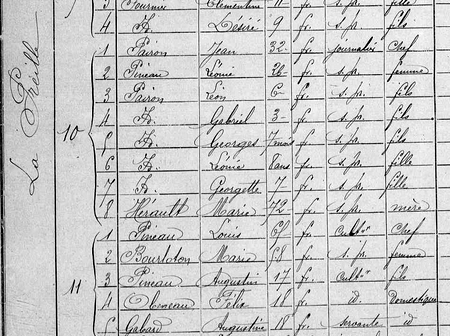 La Preille
3 Fournier Clémentine 11 fr. s. p. fille
4 id. Désiré 9 fr. s. p. fils
10
1 Pairon Jean 32 fr. journalier Chef
2 Pineau Léonie 26 fr. s. p. femme
3 Pairon Léon 6 fr. s. p. fils
4 id. Gabriel 3 fr. s. p. fils
5 id. Georges 7 mois fr. s. p. fils
6 id. Léonie 8 ans fr. s. p. fille
7 id. Georgette 7 fr. s. p. fille
8 Hérault Marie 72 fr. s. p. mère
11
1 Pineau Louis fr. Cultr Chef
2 Marie 58 fr. s. p. femme
3 Pineau Augustin 17 fr. Cultr fils
4 Félix 18 fr. id. Domestique
5 Gabard Augustine 18 fr. servante id